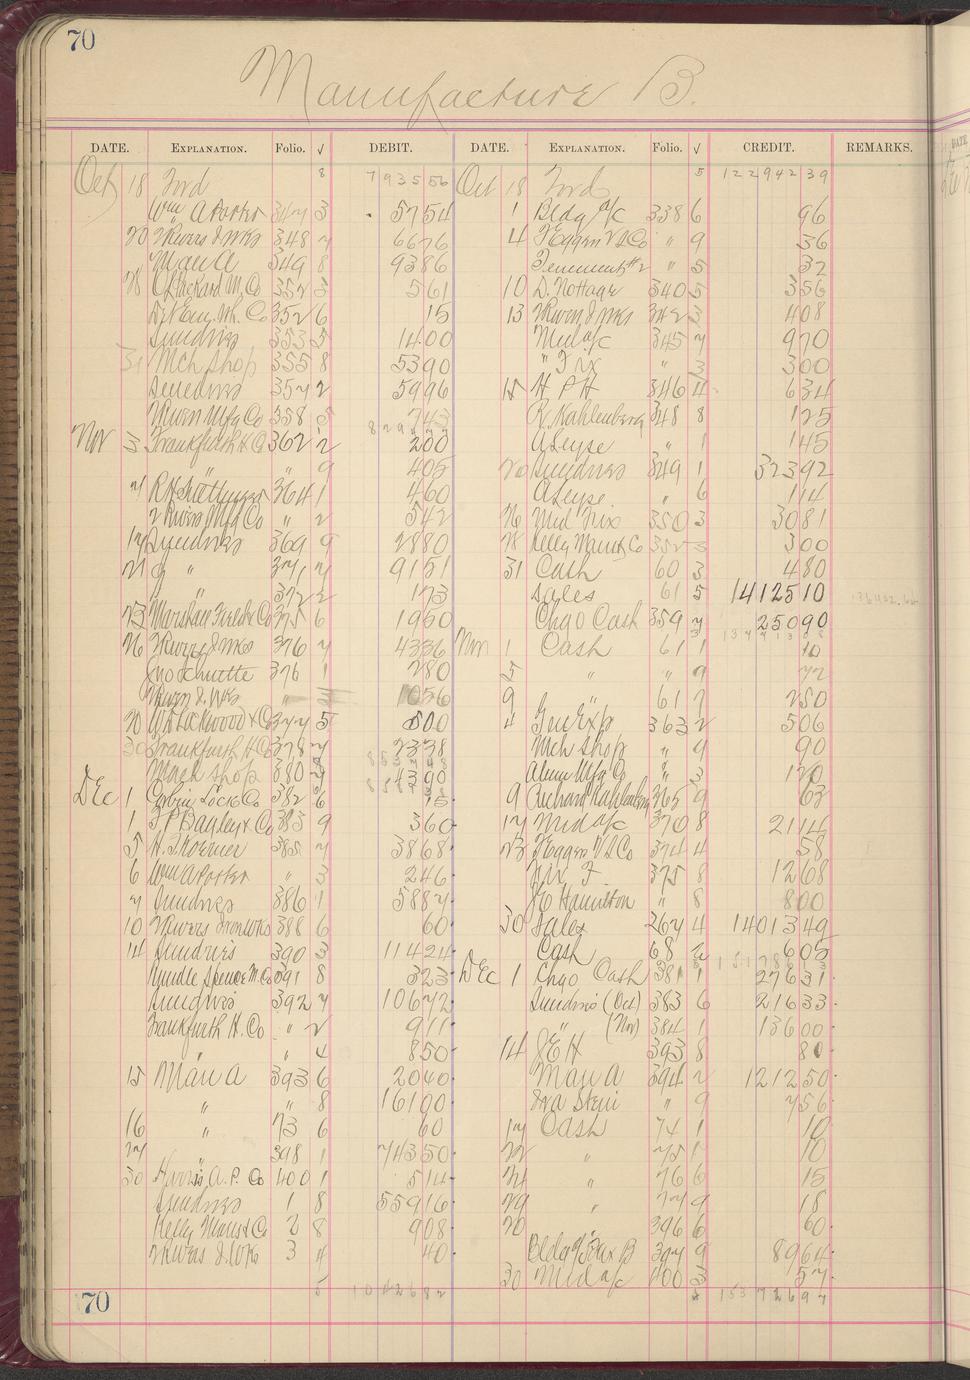 70
Manufacture B.
DATE. EXPLANATION. Folio. √ DEBIT. DATE. EXPLANATION. Folio. √ CREDIT. REMARKS.
Oct 18 Ford 8 7935 56 Oct 18 Ford 5 122942 39
Wm A Porter 347 3 57 54 1 Bldg a/c 338 6 96
20 2 Rivers I Wks 348 7 66 76 4 F Eggers V S Co " 9 36
Man A 349 8 93 86 Tenement #2 " 5 32
352 3 5 61 10 D. Nottage 340 5 3 56
352 6 15 13 2 Rivers I Wks 342 3 4 08
Sundries 353 5 14 00 Mid a/c 345 7 9 70
31 Mch Shop 355 8 53 90 " Fix " 3 3 00
Sundries 357 2 59 96 15 H P H 346 4 6 34
Mfg Co 358 5 7 43 R. Kahlenberg 348 8 1 25
Nov 3 Frankfurth H Co 362 2 2 00 A Leyse " 1 1 45
" 9 4 05 20 Sundries 349 1 323 92
7 364 1 4 60 A Leyse " 6 1 14
2 Rivers Mfg Co " 2 5 42 26 Mid Fix 350 3 30 81
17 Sundries 369 9 28 80 28 Kelly Maus & Co 352 3 3 00
21 " 371 7 91 51 31 Cash 60 3 4 80
" 372 2 1 73 Sales 61 5 14125 10
23 Marshall Field & Co 375 6 19 50 Chgo Cash 359 7 250 90
26 2 Rivers I Wks 376 7 43 36 Nov 1 Cash 61 1 10
Jno Schuette 376 1 2 80 5 " " 9 72
2 Rivers I. Wks " 10 56 9 " 61 7 2 50
30 W A Lockwood & Co 377 5 5 00 4 Gen Exp 363 2 5 06
30 Frankfurth H Co 378 7 23 38 Mch Shop " 9 90
Mach Shop 380 43 90 Alum Mfg Co " 3 1 20
Dec 1 Corbin Lock Co 382 6 15 9 Richard Kahlenberg 365 9 63
1 F P Bagley & Co 383 9 3 60 17 Mid a/c 370 8 21 14
5 H. J. Koerner 385 7 38 68 23 F Eggers V S Co 374 4 58
6 Wm A Porter " 3 2 46 Fix F. 375 8 12 68
7 Sundries 386 1 58 87 J E Hamilton " 8 8 00
10 2 Rivers Iron Wks 388 6 60 30 Sales 267 4 14013 49
14 Sundries 390 3 114 24 Cash 68 2 6 05
Rundle Spence M. Co 391 8 3 23 Dec 1 Chgo Cash 381 1 276 31
Sundries 392 7 106 72 Sundries (Oct) 383 6 216 33
Frankfurth H. Co " 2 9 11 " (Nov) 384 1 136 00
" " 4 8 50 14 J E H 393 8 80
15 Man A 393 6 20 40 Man A 394 2 1212 50
" " 8 161 00 Ira Stein " 9 7 56
16 " 73 6 60 17 Cash 74 1 10
27 " 398 1 743 50 22 " 75 1 10
30 Harris, A. P. Co 400 1 5 14 24 " 76 6 15
Sundries 1 8 559 16 29 " 77 9 18
Kelly Maus & Co 2 8 9 08 20 396 6 60
2 Rivers I. Wks 3 4 40 Bldg a/c Fax B 397 9 89 64
30 Mid a/c 400 3 57
5 10426 82 153726 97
70